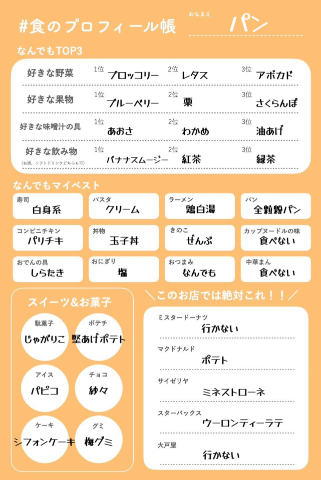 #食のプロフィール帳
おなまえ
パン
なんでもTOP3
好きな野菜 1位 ブロッコリー 2位 レタス 3位 アボカド
好きな果物 1位 ブルーベリー 2位 栗 3位 さくらんぼ
好きな味噌汁の具 1位 あおさ 2位 わかめ 3位 油あげ
好きな飲み物 1位 バナナスムージー 2位 紅茶 3位 緑茶
(お酒、ソフトドリンクどちらも可)
なんでもマイベスト
寿司 パスタ ラーメン パン
白身系 クリーム 鶏白湯 全粒粉パン
コンビニチキン 丼物 きのこ カップヌードルの味
パリチキ 玉子丼 ぜんぶ 食べない
おでんの具 おにぎり おつまみ 中華まん
しらたき 塩 なんでも 食べない
スイーツ&お菓子
駄菓子 ポテチ
じゃがりこ 堅あげポテト
アイス チョコ
パピコ 紗々
ケーキ グミ
シフォンケーキ 梅グミ
＼このお店では絶対これ！！／
ミスタードーナツ
行かない
マクドナルド
ポテト
サイゼリヤ
ミネストローネ
スターバックス
ウーロンティーラテ
大戸屋
行かない